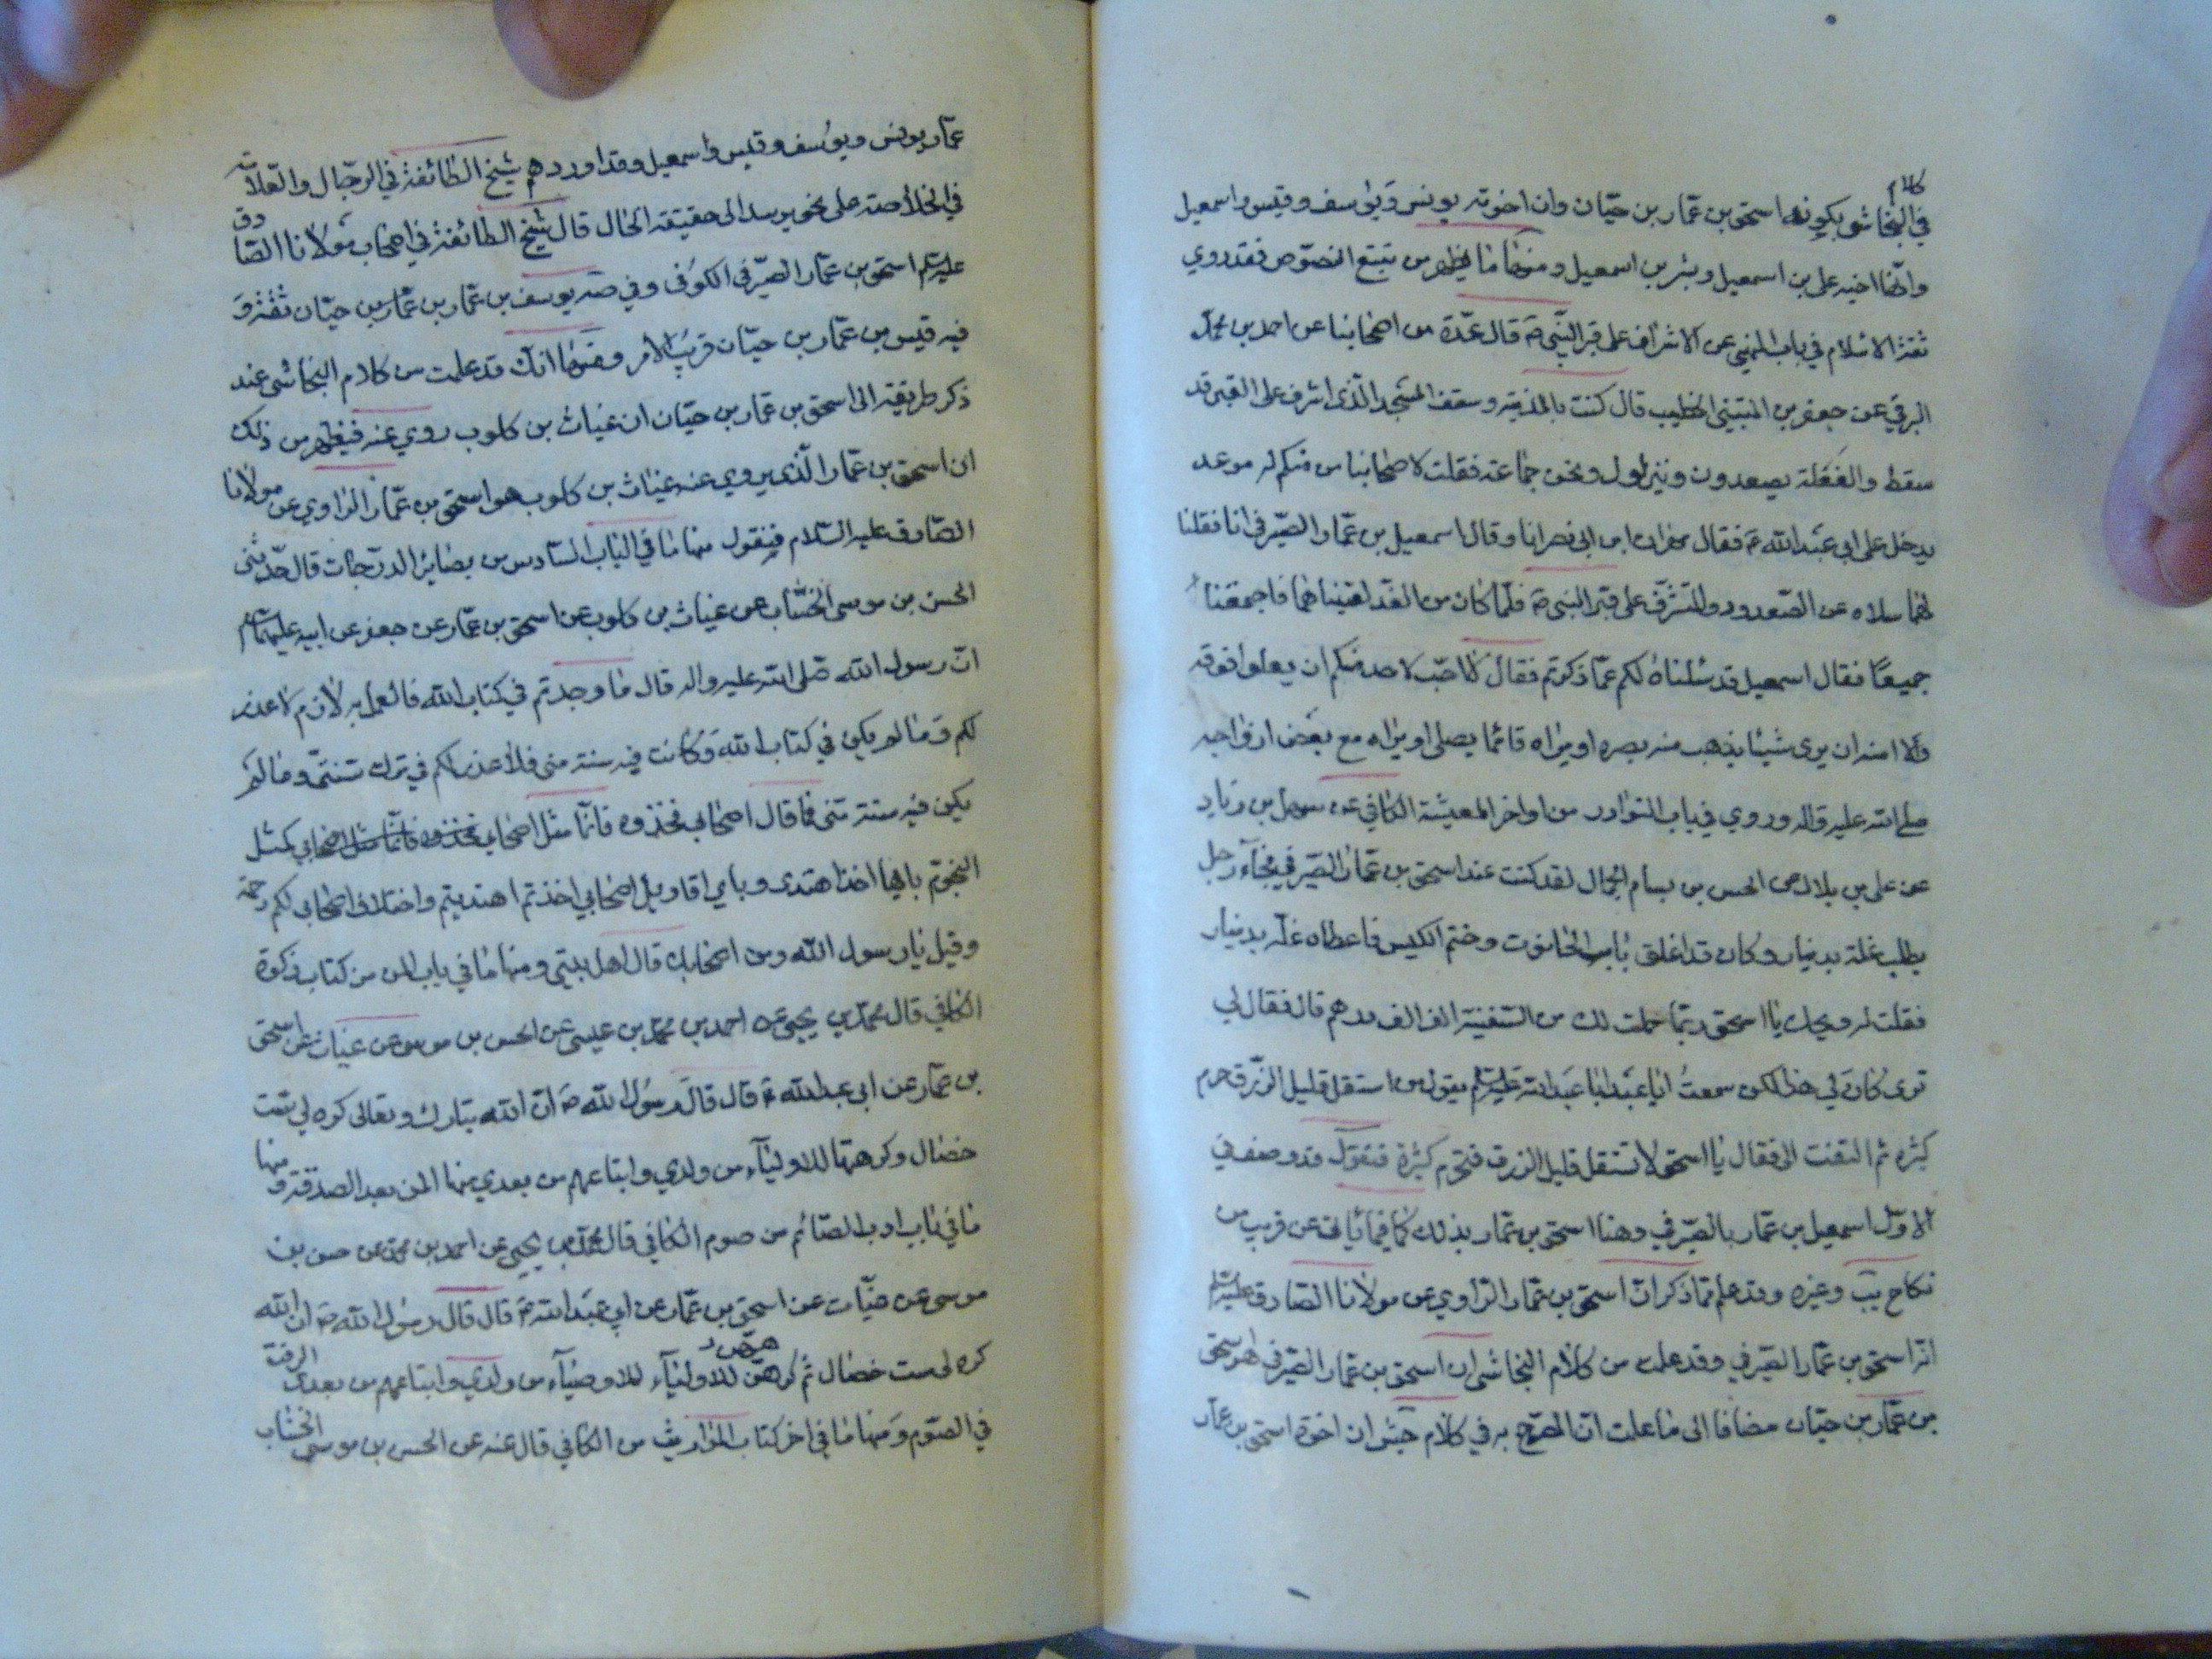 كلام
في النجاشي بكونه اسحق بن عمار بن حيان وان اخوته يونس ويوسف وقيس واسمعيل
وابنا اخيه علي بن اسمعيل وبشر بن اسمعيل ومنها ما يظهر من تتبع النصوص فقد روي
ثقة الاسلام في باب النهي عن الاشراف على قبر النبي ص قال عدة من اصحابنا عن احمد بن محمد
البرقي عن جعفر بن المثنى الخطيب قال كنت بالمدينة وسقف المسجد الذي اشرف على القبر قد
سقط والفعلة يصعدون وينزلون ونحن جماعة فقلت لاصحابنا من منكم له موعد
يدخل على ابي عبد الله ع فقال مهران ابن ابي نصر انا وقال اسمعيل بن عمار الصيرفي انا فقلنا
لهما سلاه عن الصعود والتشرف على قبر النبي ص فلما كان من الغد لقيناهما فاجتمعنا
جميعا فقال اسمعيل قد سئلناه لكم عما ذكرتم فقال لا احب لاحد منكم ان يعلوا فوقه
ولا امنه ان يرى شيئا يذهب منه بصره او يراه قائما يصلي او يراه مع بعض ازواجه
صلى الله عليه واله وروي في باب النوادر من اواخر المعيشة الكافي عن سهل بن زياد
عن علي بن بلال عن الحسن بن بسام الجمال لقد كنت عند اسحق بن عمار الصيرفي فجاء رجل
يطلب غلة بدينار وكان قد اغلق باب الحانوت وختم الكيس فاعطاه غلة بدينار
فقلت له ويحك يا اسحق ربما حملت لك من السفينة الف الف درهم قال فقال لي
ترى كان لي هذا لكن سمعت ابا عبد ابا عبد الله عليه السلام يقول من استقل قليل الرزق حرم
كثيره ثم التفت الي فقال يا اسحق لا تستقل قليل الرزق فتحرم كثيرة فنقول قد وصف في
الاول اسمعيل بن عمار بالصيرفي وهنا اسحق بن عمار بذلك كما فيما ياتي عن قريب من
نكاح يب وغيره وقد علم مما ذكر ان اسحق بن عمار الراوي عن مولانا الصادق عليه السلام
انه اسحق بن عمار الصيرفي وقد علمت من كلام النجاشي ان اسحق بن عمار الصيرفي هو اسحق
بن عمار بن حيان مضافا الى ما علمت ان المصرح به في كلام جش ان اخوة اسحق بن عمار
عمار يونس ويوسف وقيس واسمعيل وقد اوردهم شيخ الطائفة في الرجال والعلامة
في الخلاصة على نحو يرسد الى حقيقة الحال قال شيخ الطائفة في اصحاب مولانا الصادق
عليه السلام اسحق بن عمار الصيرفي الكوفي وفي صه يوسف بن عمار بن عمار بن حيان ثقة و
فيه قيس بن عمار بن حيان قريب الامر ومنها انك قد علمت من كلام النجاشي عند
ذكر طريقه الى اسحق بن عمار بن حيان ان غياث بن كلوب روي عنه فيظهر من ذلك
ان اسحق بن عمار الذي يروي عنه غياث بن كلوب هو اسحق بن عمار الراوي عن مولانا
الصادق عليه السلام فنقول منها ما في الباب السادس من بصائر الدرجات قال حدثني
الحسن بن موسى الخشاب عن غياث بن كلوب عن اسحق بن عمار عن جعفر عن ابيه عليهما السلام
ان رسول الله صلى الله عليه واله قال ما وجدتم في كتاب الله فالعمل به لازم لا عذر
لكم وما لم يكن في كتاب الله وكانت فيه سنة مني فلا عذر لكم في ترك سنتي وما لم
يكن فيه سنة مني فما قال اصحابي فخذوه فانما مثل اصحابي فخذوه فانما مثل اصحابي كمثل
النجوم بايها اخذ اهتدى وباي اقاويل اصحابي اخذتم اهتديتم واختلاف اصحابي لكم رحمة
وقيل يا رسول الله ومن اصحابك قال اهل بيتي ومنها ما في باب المن من كتاب زكوة
الكافي قال محمد بن يحيى عن احمد بن محمد بن عيسى عن الحسن بن موسى عن غياث عن اسحق
بن عمار عن ابي عبد الله ع قال قال رسول الله ص ان الله تبارك وتعالى كره لي ست
خصال وكرهتها للاوليآء من ولدي واتباعهم من بعدي منها المن بعد الصدقة ومنها
ما في باب ادب الصائم من صوم الكافي قال محمد بن يحيى عن احمد بن محمد عن حسن بن
موسى عن غياث عن اسحق بن عمار عن ابي عبد الله ع قال قال رسول الله ص ان الله
كره لي ست خصال ثم كرهتهن للاوليآء للاوصيآء من ولدي واتباعهم من بعدي الرفث
في الصوم ومنها ما في اخر كتاب المواريث من الكافي قال عنه عن الحسن بن موسى الخشاب